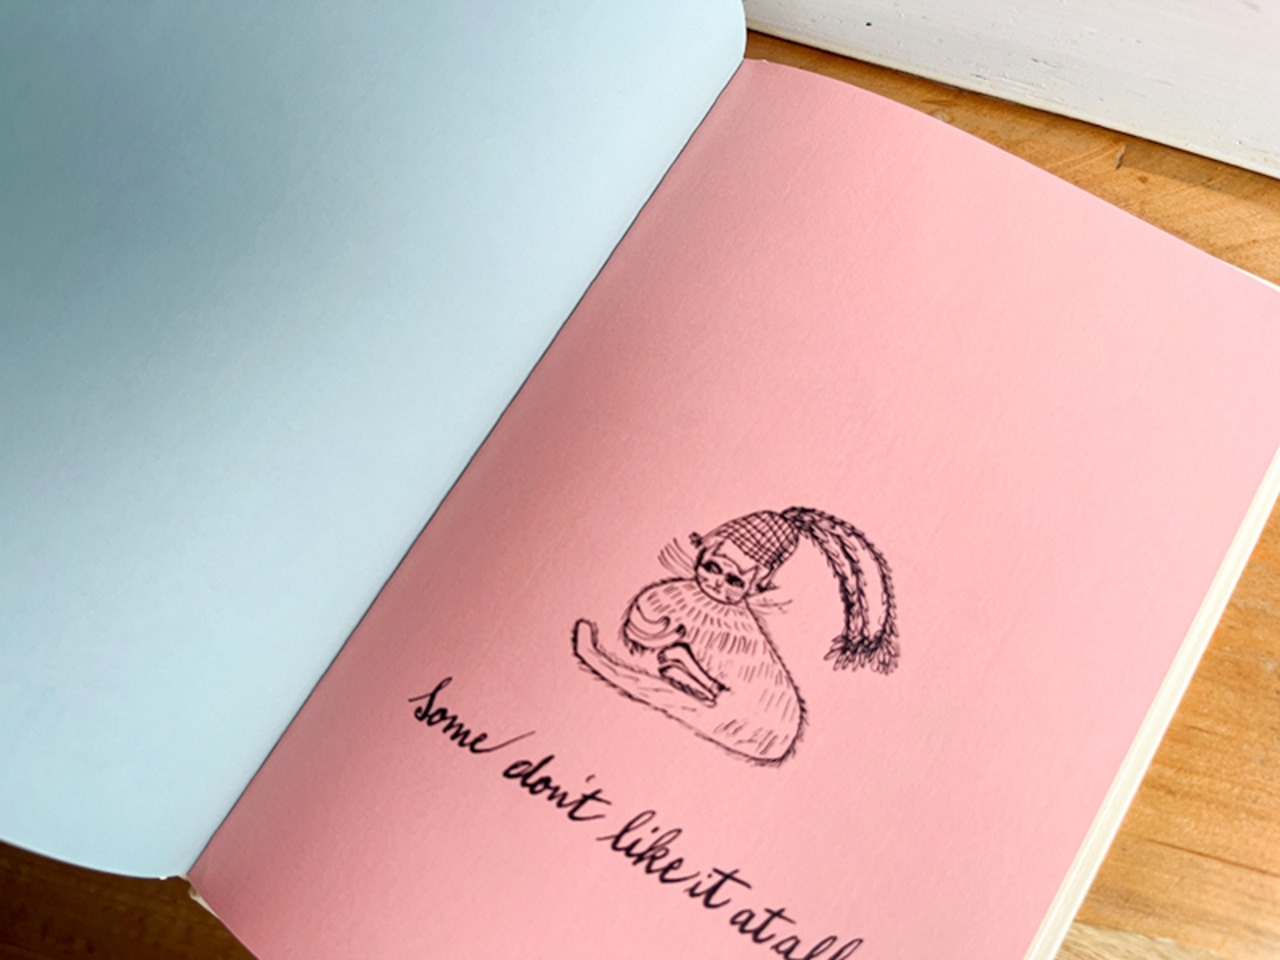 Some don't like it at all